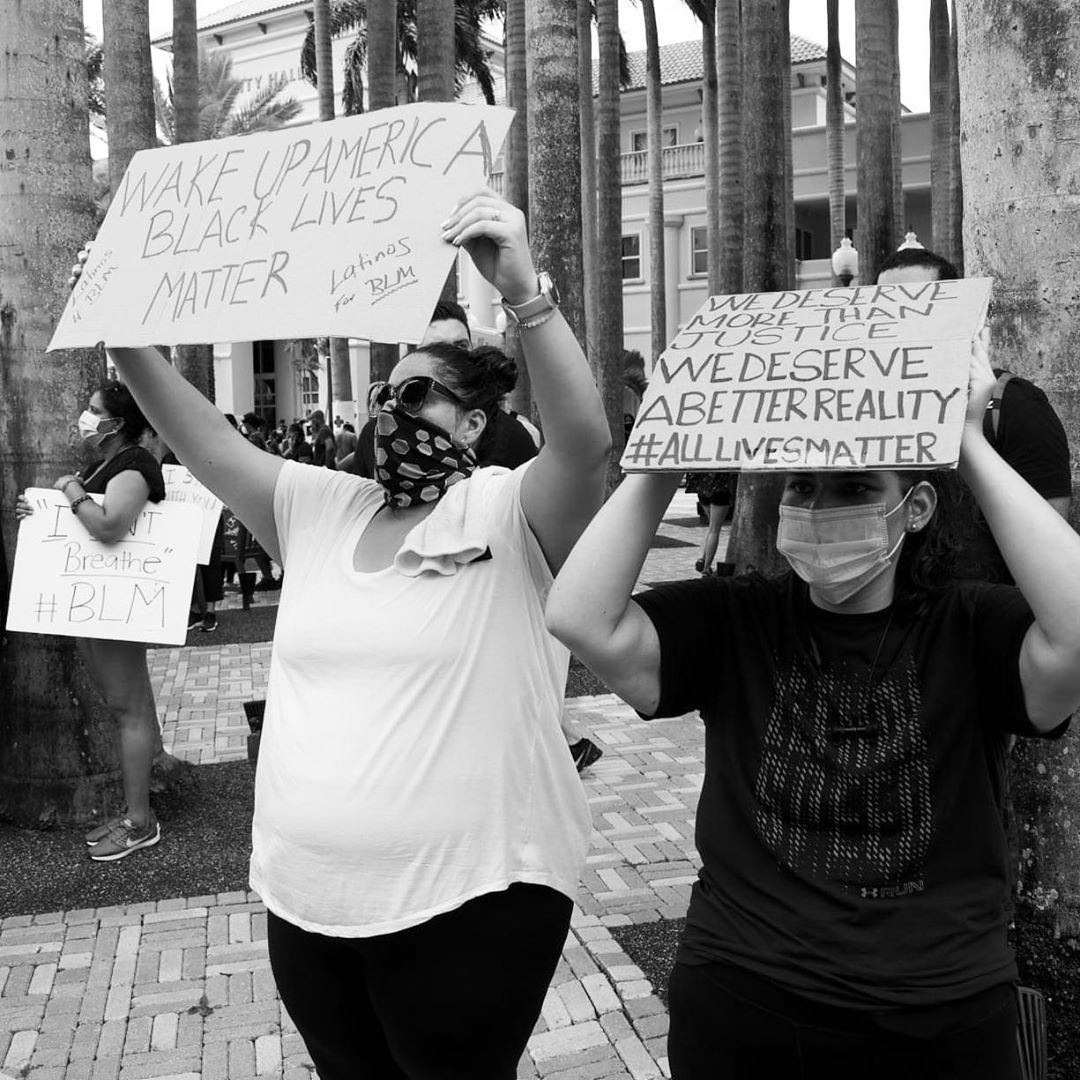 CITY HALL
WAKE UP AMERICA
BLACK LIVES
MATTER
Latinos
for BLM
Latinos
BLM
WE DESERVE
MORE THAN
JUSTICE
WE DESERVE
A BETTER REALITY
#ALLLIVESMATTER
I
WITH YOU
"I
Breathe"
#BLM
RUN